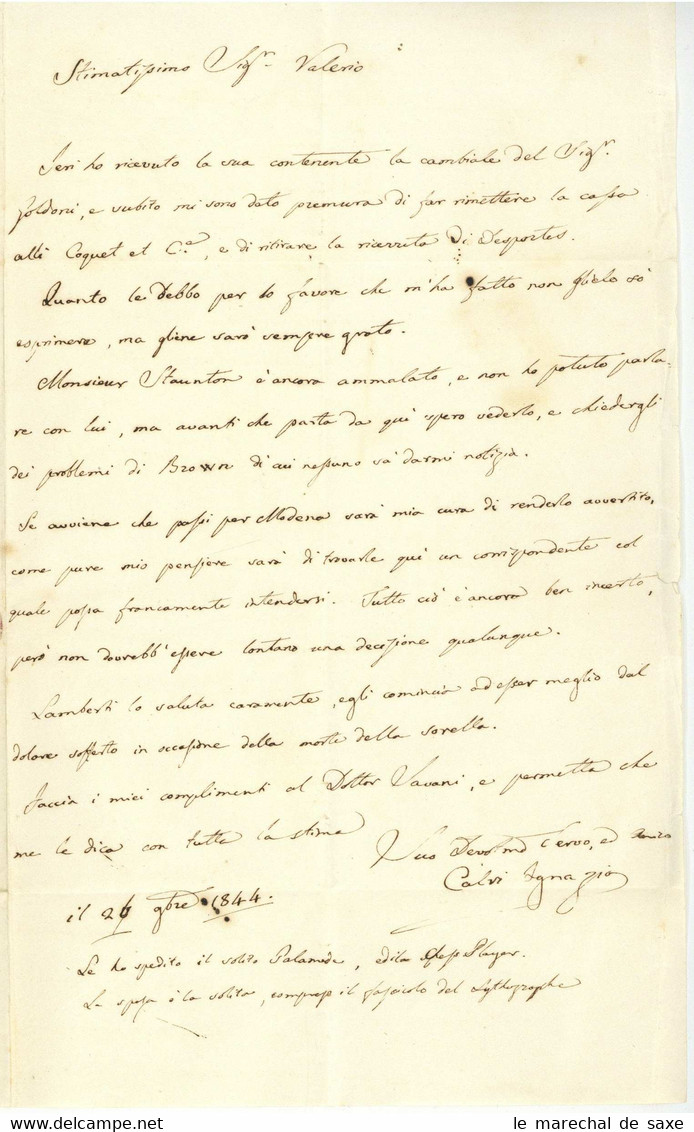 Stimatissimo Sigr. Valerio
Ieri ho ricevuto la sua contenente la cambiale del Sigr.
Goldoni, e subito mi sono dato premura di far rimettere la cassa
alli Coquet et C.a, e di ritirare la ricevuta di Desportes.
Quanto le debbo per lo favore che m'ha fatto non glielo sò
esprimere, ma gliene sarò sempre grato.
Monsieur Staunton è ancora ammalato, e non ho potuto parla-
re con lui, ma avanti che parta da quì spero vederlo, e chiedergli
dei problemi di Brown di cui nessuno sa darmi notizia.
Se avviene che passi per Modena sarà mia cura di renderlo avvertito,
come pure mio pensiere sarà di trovarle quì un corrispondente col
quale possa francamente intendersi. Tutto ciò è ancora ben incerto,
però non dovrebb'essere lontano una decisione qualunque.
Lamberti lo saluta caramente, egli comincia ad esser meglio dal
dolore sofferto in occasione della morte della sorella.
Faccia i miei complimenti al Dottor Vavani, e permetta che
me le dica con tutta la stima
Suo Devotmo Servo, ed Amico
Calvi Ignazio
il 26 9bre 1844.
Le ho spedito il solito Palamede, ed il Chess Player.
La spesa è la solita, compreso il fascicolo del Lythographe
www.delcampe.net
le marechal de saxe